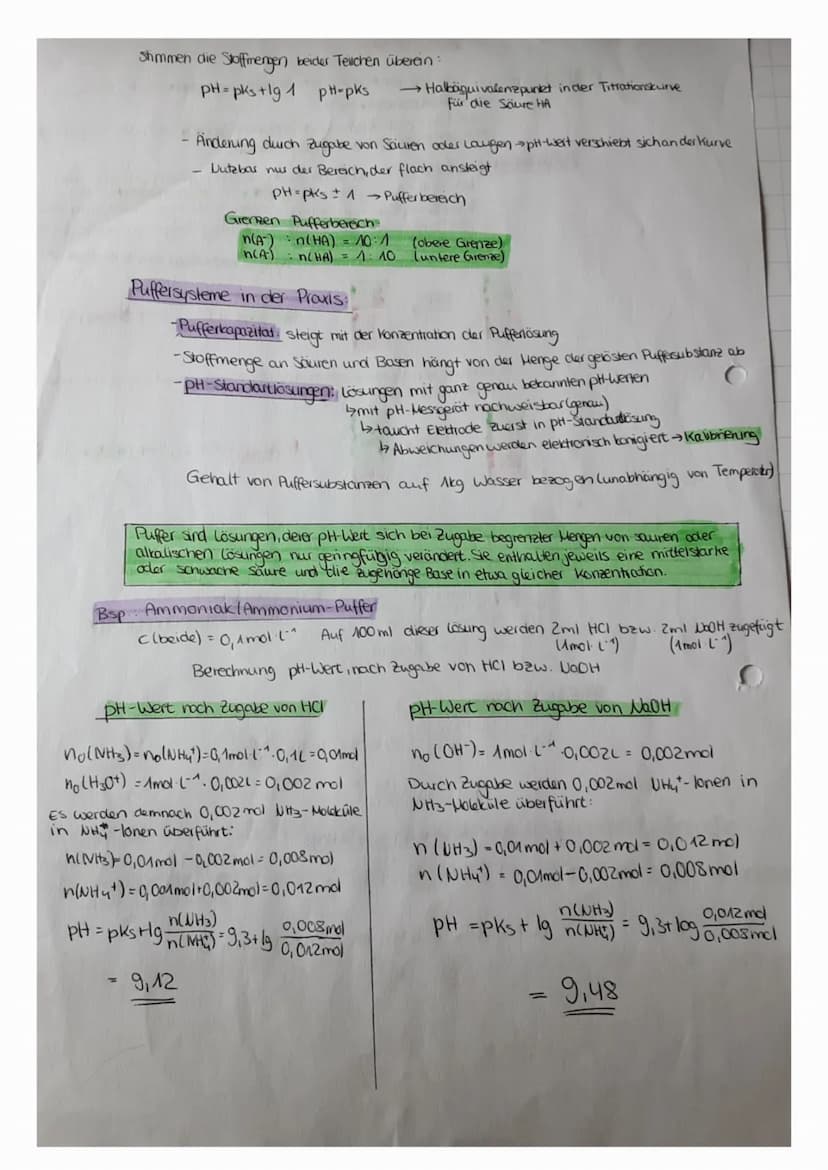 Stimmen die Stoffmengen beider Teilchen überein:
pH = pKs + lg 1 pH = pKs → Halbäquivalenzpunkt in der Titrationskurve
für die Säure HA
- Änderung durch Zugabe von Säuren oder Laugen → pH-Wert verschiebt sich an der Kurve
- Nutzbar nur der Bereich, der flach ansteigt
pH = pKs ± 1 → Pufferbereich
Grenzen Pufferbereich
n(A⁻) : n(HA) = 10 : 1 (obere Grenze)
n(A⁻) : n(HA) = 1 : 10 (untere Grenze)
Puffersysteme in der Praxis:
- Pufferkapazität: steigt mit der Konzentration der Pufferlösung
- Stoffmenge an Säuren und Basen hängt von der Menge der gelösten Puffersubstanz ab
- pH-Standartlösungen: Lösungen mit ganz genau bekannten pH-Werten
↳ mit pH-Messgerät nachweisbar (genau)
↳ taucht Elektrode zuerst in pH-Standartlösung
↳ Abweichungen werden elektronisch korrigiert → Kalibrierung
Gehalt von Puffersubstanzen auf 1kg Wasser bezogen (unabhängig von Temperatur)
Puffer sind Lösungen, derer pH-Wert sich bei Zugabe begrenzter Mengen von sauren oder
alkalischen Lösungen nur geringfügig verändert. Sie enthalten jeweils eine mittelstarke
oder schwache Säure und die zugehörige Base in etwa gleicher Konzentration.
Bsp.: Ammoniak/Ammonium-Puffer
c(beide) = 0,1mol·L⁻¹ Auf 100ml dieser Lösung werden 2ml HCl bzw. 2ml NaOH zugefügt
(1mol·L⁻¹) (1mol·L⁻¹)
Berechnung pH-Wert, nach Zugabe von HCl bzw. NaOH
pH-Wert nach Zugabe von HCl
n₀(NH₃) = n₀(NH₄⁺) = 0,1mol·L⁻¹·0,1L = 0,01mol
n₀(H₃O⁺) = 1mol·L⁻¹·0,002L = 0,002mol
Es werden demnach 0,002mol NH₃-Moleküle
in NH₄⁺-Ionen überführt:
n(NH₃) = 0,01mol - 0,002mol = 0,008mol
n(NH₄⁺) = 0,001mol + 0,002mol = 0,012mol
pH = pKs + lg n(NH₃)/n(NH₄⁺) = 9,3 + lg 0,008mol/0,012mol
= 9,12
pH-Wert nach Zugabe von NaOH
n₀(OH⁻) = 1mol·L⁻¹·0,002L = 0,002mol
Durch Zugabe werden 0,002mol NH₄⁺-Ionen in
NH₃-Moleküle überführt:
n(NH₃) = 0,01mol + 0,002mol = 0,012mol
n(NH₄⁺) = 0,01mol - 0,002mol = 0,008mol
pH = pKs + lg n(NH₃)/n(NH₄⁺) = 9,3 + log 0,012mol/0,008mol
= 9,48